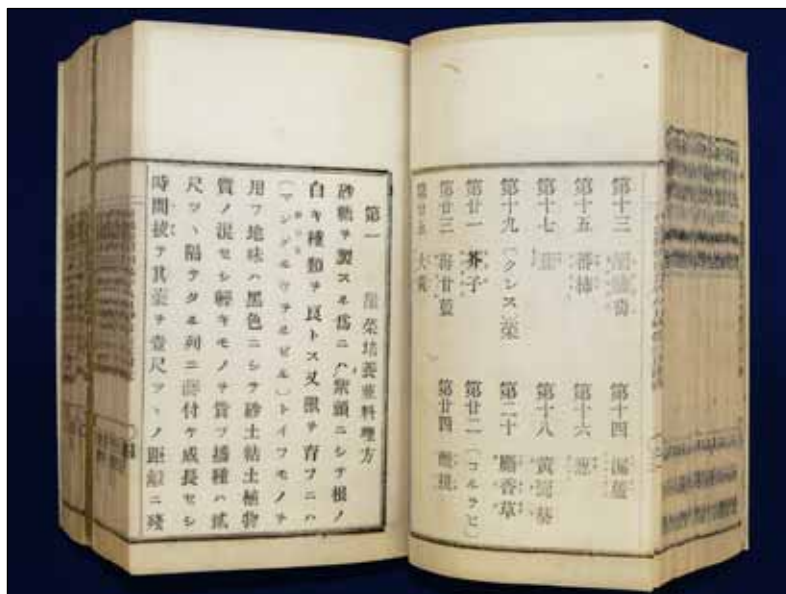 第十三 第十四
第十五 蕃柿 第十六 葱
第十七 第十八 黄蜀葵
第十九 〔クレス〕菜 第二十 麝香草
第廿一 芥子 第廿二 〔コルラビ〕
第廿三 海甘藍 第廿四
第廿五 大黄
第一 菾菜培養並料理方
砂糖ヲ製スル為ニハ紫頭ニシテ根ノ
白キ種類ヲ良トス又獣ヲ育フニハ
〔マングルウヲルゼル〕トイフモノヲ
用フ地味ハ黒色ニシテ砂土粘土植物
質ノ混セシ軽キモノヲ貴フ播種ハ貳
尺ツヽ隔テタル列ニ蒔付ケ成長セシ
時間抜テ其莖ヲ壹尺ツヽノ距離ニ残